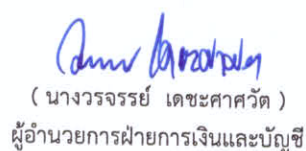 ( นางวรจรรย์ เดชะศาศวัต )
ผู้อำนวยการฝ่ายการเงินและบัญชี